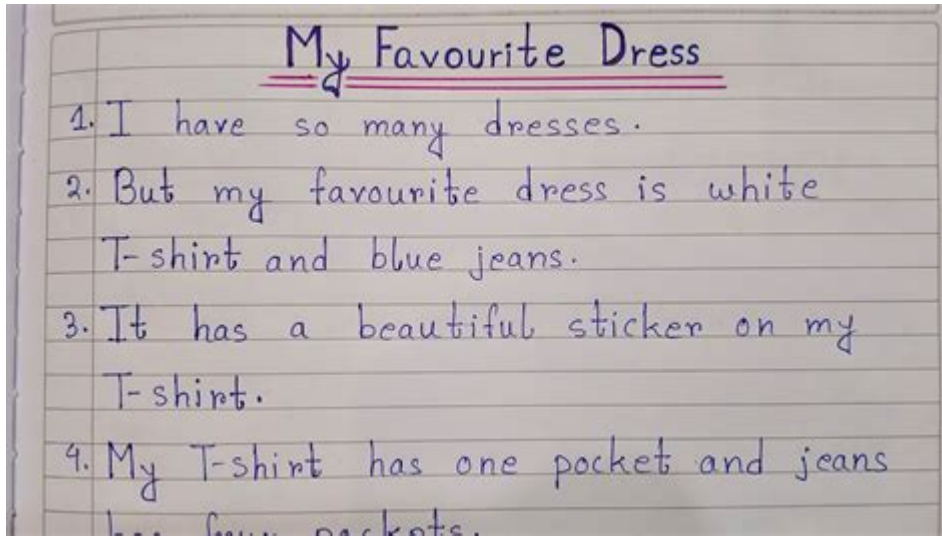 My Favourite Dress
1. I have so many dresses.
2. But my favourite dress is white
T-shirt and blue jeans.
3. It has a beautiful sticker on my
T-shirt.
4. My T-shirt has one pocket and jeans
has four pockets.